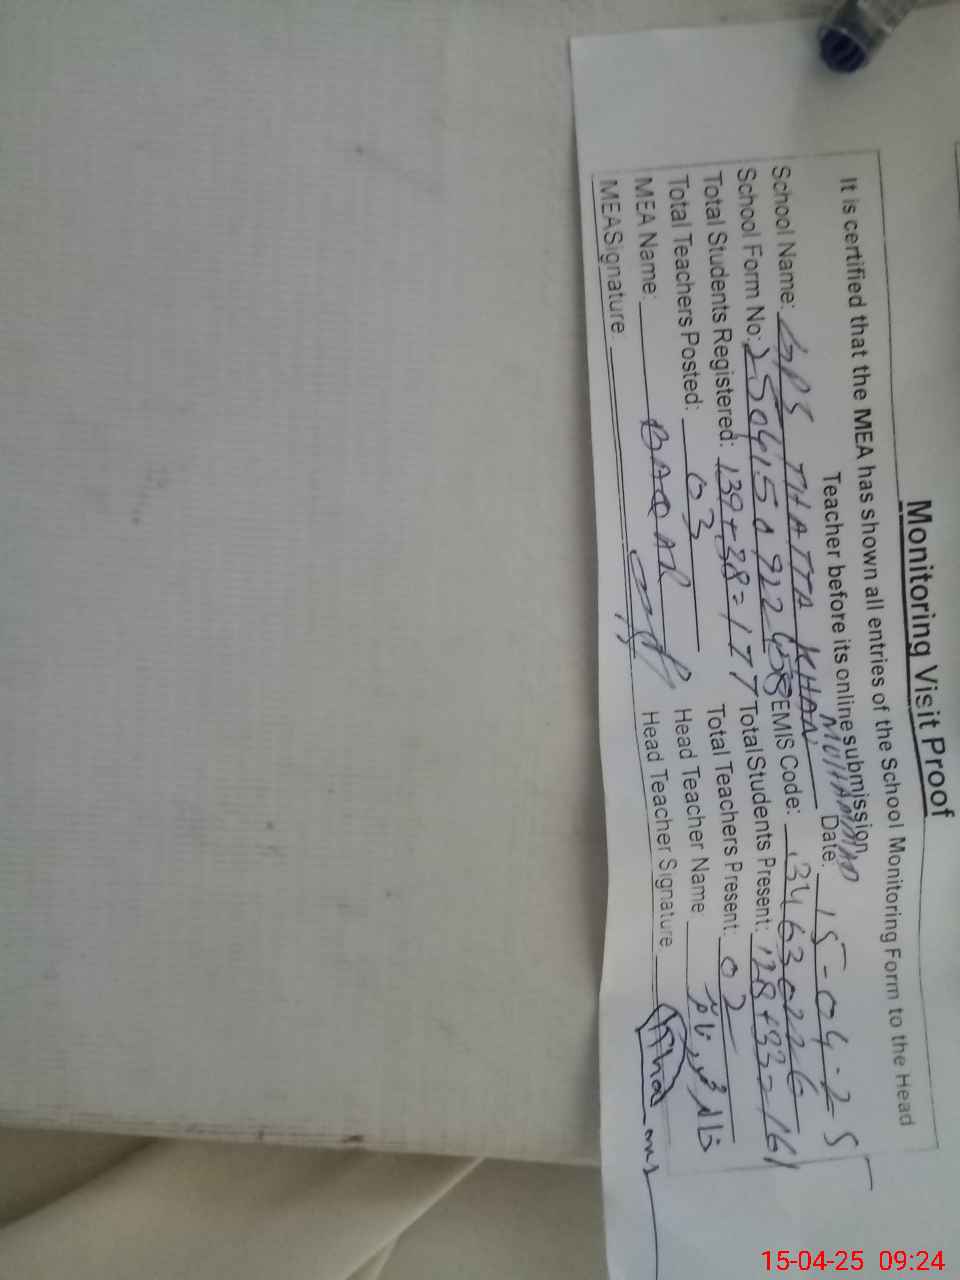 Monitoring Visit Proof
It is certified that the MEA has shown all entries of the School Monitoring Form to the Head
Teacher before its online submission.
MUHAMMAD
School Name: GPS THATTA KHAN Date: 15-04-25
School Form No: EMIS Code: 34630226
Total Students Registered: 139+38=177 Total Students Present: 128+33=161
Total Teachers Posted: 03 Total Teachers Present: 02
MEA Name: BAQAR Head Teacher Name
MEA Signature: Head Teacher Signature
15-04-25 09:24